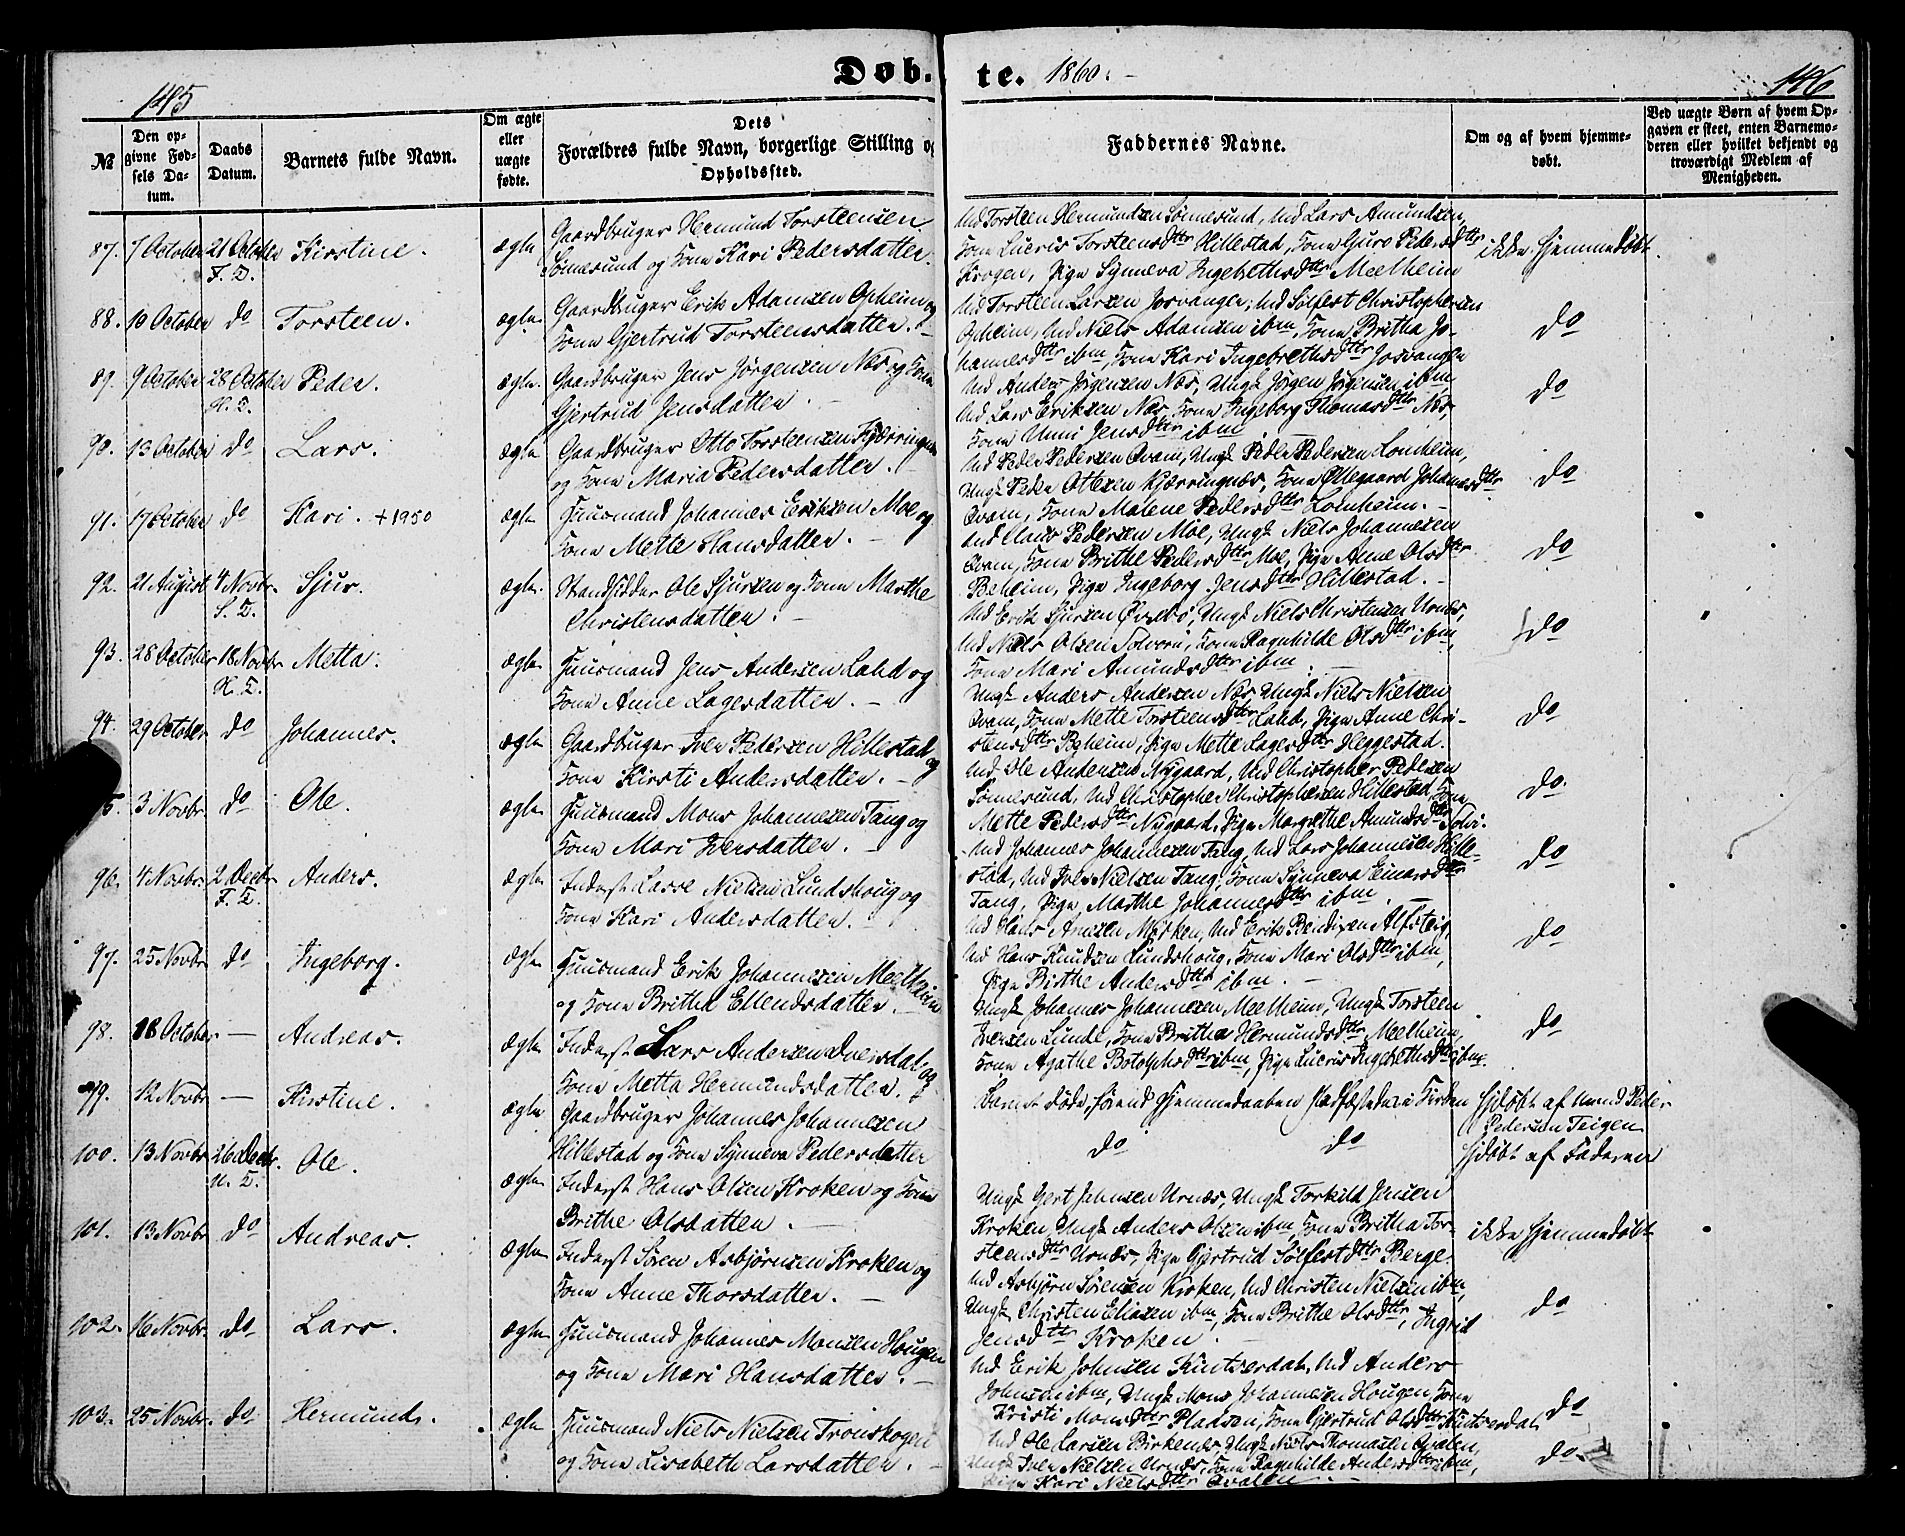 145
Døb-
te. 1860.
146
№
Den opgivne Fødsels Datum.
Daabs Datum.
Barnets fulde Navn.
Om ægte eller uægte fødte.
Dets Forældres fulde Navn, borgerlige Stilling og Opholdssted.
Faddernes Navne.
Om og af hvem hjemmedøbt.
Ved uægte Børn af hvem Opgaven er skeet, enten Barnemoderen eller hvilket bekjendt og troværdigt Medlem af Menigheden.
87. 7 October 21 October Kirstine. ægte Gaardbruger Hermund Torsteensen
F. T. Sømesund og Kone Kari Pedersdatter.
Md Torsteen Hermundsen Sømesund, Md Lars Amundsen,
Kone Lucris Torsteensdtr Hillestad, Kone Gjuro Pedersdtr
Krogen, Pige Synneva Ingebrethsdtr Meelheim
ikke hjemmedøbt.
88. 10 October do Torsteen. ægte Gaardbruger Erik Adamsen Opheim og
Kone Gjertrud Torsteensdatter.
Md Torsteen Larsen Josvanger, Md Solfest Christophersen
Opheim, Md Niels Adamsen ibm, Kone Britha Jo-
hannesdtr ibm, Kone Kari Ingebrethsdtr Josvangen
do
89. 9 October 28 October Peder. ægte Gaardbruger Jens Jørgensen Næs og Kone
H. T. Gjertrud Jensdatter.
Md Anders Jørgensen Næs, Ungk Jørgen Jørgensen ibm,
Md Lars Eriksen Næs, Kone Ingeborg Thomasdtr Næs,
Kone Unni Jensdtr ibm
do
90. 13 October do Lars. ægte Gaardbruger Otto Torsteensen Kjærringnæs
og Kone Maria Pedersdatter.
Md Peder Pedersen Qvam, Ungk Peder Pedersen Lomheim,
Ungk Peder Ottesen Kjærringnæs, Kone Ollegaard Johannesdtr
Qvam, Kone Malene Pedersdtr Lomheim.
do
91. 17 October do Kari. +1950 ægte Huusmand Johannes Eriksen Moe og
Kone Mette Hansdatter.
Md Claus Pedersen Moe, Ungk Niels Johannesen
Qvam, Kone Brithe Pedersdtr Moe, Pige Anne Olsdtr
Beheim, Pige Ingeborg Jensdtr Hillestad.
do
92. 21 August 4 Novbr. Sjur. ægte Strandsidder Ole Sjursen og Kone Marthe
S. T. Christensdatter.
Md Erik Sjursen Øvrebø, Ungk Niels Christensen Urnæs,
Md Niels Olsen Solvorn, Kone Ragnhilde Olsdtr ibm,
Kone Mari Amundsdtr ibm.
do
93. 28 October 18 Novbr Metta. ægte Huusmand Jens Andersen Lahd og
H. T. Kone Anne Lagesdatter.
Ungk Anders Andersen Næs, Ungk Niels Nielsen
Qvam, Kone Mette Torsteensdtr Lahd, Pige Anne Chri-
stensdtr Beheim, Pige Mette Lagesdtr Heggestad.
do
94. 29 October do Johannes. ægte Gaardbruger Iver Pedersen Hillestad og
Kone Kirsti Andersdatter.
Md Ole Andersen Nygaard, Md Christopher Pedersen
Sømesund, Md Christopher Christophersen Hillestad, Kone
Mette Pedersdtr Nygaard, Pige Margrethe Amundsdtr Solv.
do.
5. 3 Novbr do Ole. ægte Huusmand Mons Johannesen Tang og
Kone Mari Iversdatter.
Md Johannes Johannesen Tang, Md Lars Johannesen Hille-
stad, Md Iver Nielsen Tang, Kone Synneva Einarsdtr
Tang, Pige Marthe Johannesdtr ibm.
do
96. 4 Novbr. 2 Decbr Anders. ægte Inderst Lasse Nielsen Lundshoug og
F. T. Kone Kari Andersdatter.
Md Hans Arnesen Mørken, Md Erik Bendixen Alfsteig,
Md Hans Knudsen Lundshoug, Kone Mari Olsdtr ibm,
Pige Birthe Andersdtr ibm.
do
97. 25 Novbr do Ingeborg. ægte Huusmand Erik Johannesen Meelheim
og Kone Britha Ellendsdatter.
Ungk Johannes Johannesen Meelheim, Ungk Torsteen
Iversen Lunde, Kone Britha Hermundsdtr Meelheim,
Kone Agathe Botolphsdtr ibm, Pige Lucris Ingebrethsdtr ibm.
do
98. 18 October — Andreas. ægte Inderst Lars Andersen Dversdal og
Kone Metta Hermundsdatter.
Barnet døde, førend Hjemmedaaben stadfæstedes i Kirken
Hjdøbt af Umd Peder
Pedersen Teigen
99. 12 Novbr — Kirstine. ægte Gaardbruger Johannes Johannesen
Hillestad og Kone Synneva Pedersdatter
do do
Hjdøbt af Faderen
100. 13 Novbr 26 Decbr. Ole. ægte Inderst Hans Olsen Kroken og Kone
U. T. Brithe Olsdatter.
Ungk Gert Johnsen Urnæs, Ungk Torkild Jensen
Kroken, Ungk Anders Olsen ibm, Kone Britha Tor-
steensdtr Urnæs, Pige Gjertrud Solfestdtr Berge.
ikke hjemmedøbt
101. 13 Novbr do Andreas. ægte Inderst Søren Asbjørnsen Kroken og
Kone Anne Thorsdatter.
Md Asbjørn Sørensen Kroken, Md Christen Nielsen ibm,
Ungk Christen Eliasen ibm, Kone Brithe Olsdtr, Ingrid
Jensdtr Kroken.
do
102. 16 Novbr. do Lars. ægte Huusmand Johannes Monsen Hougen
og Kone Mari Hansdatter.
Md Erik Johnsen Kintserdal, Md Anders
Johnsen ibm, Ungk Mons Johannesen Hougen, Kone
Kristi Monsdtr Pladsen, Kone Gjertrud Olsdtr Kintserdal
do
103. 25 Novbr. do Hermund. ægte Huusmand Niels Nielsen Tronskogen
og Kone Lisabeth Larsdatter.
Md Ole Larsen Birkenes, Ungk Niels Thomasen Qvalen,
Ungk Iver Nielsen Urnæs, Kone Ragnhilde Andersdtr ibm,
Pige Kari Nielsdtr Qvalen
do.